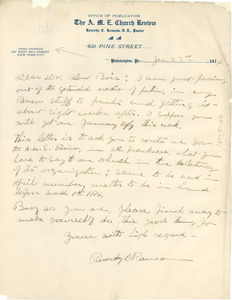 OFFICE OF PUBLICATION
The A. M. E. Church Review
Reverdy C. Ransom, D. D., Editor
631 PINE STREET
NEW YORK CITY
Philadelphia, Pa. Jan 27th 191
Dear Dr. Du Bois: I am just passing
out of the splendid ordeal of putting in
Review stuff to printer and getting it
about eight weeks after. I suppose you
will get our January this week.
This letter is to ask you to write me for
A. M. E. Review, in all frankness, what you
have to say to our church in this
of its organization; same to be used in
April number, matter to be in hand
before March 1st 191
Busy as you are, please find a way to
make yourself do this good thing for
Yours with high regard
Reverdy C Ransom